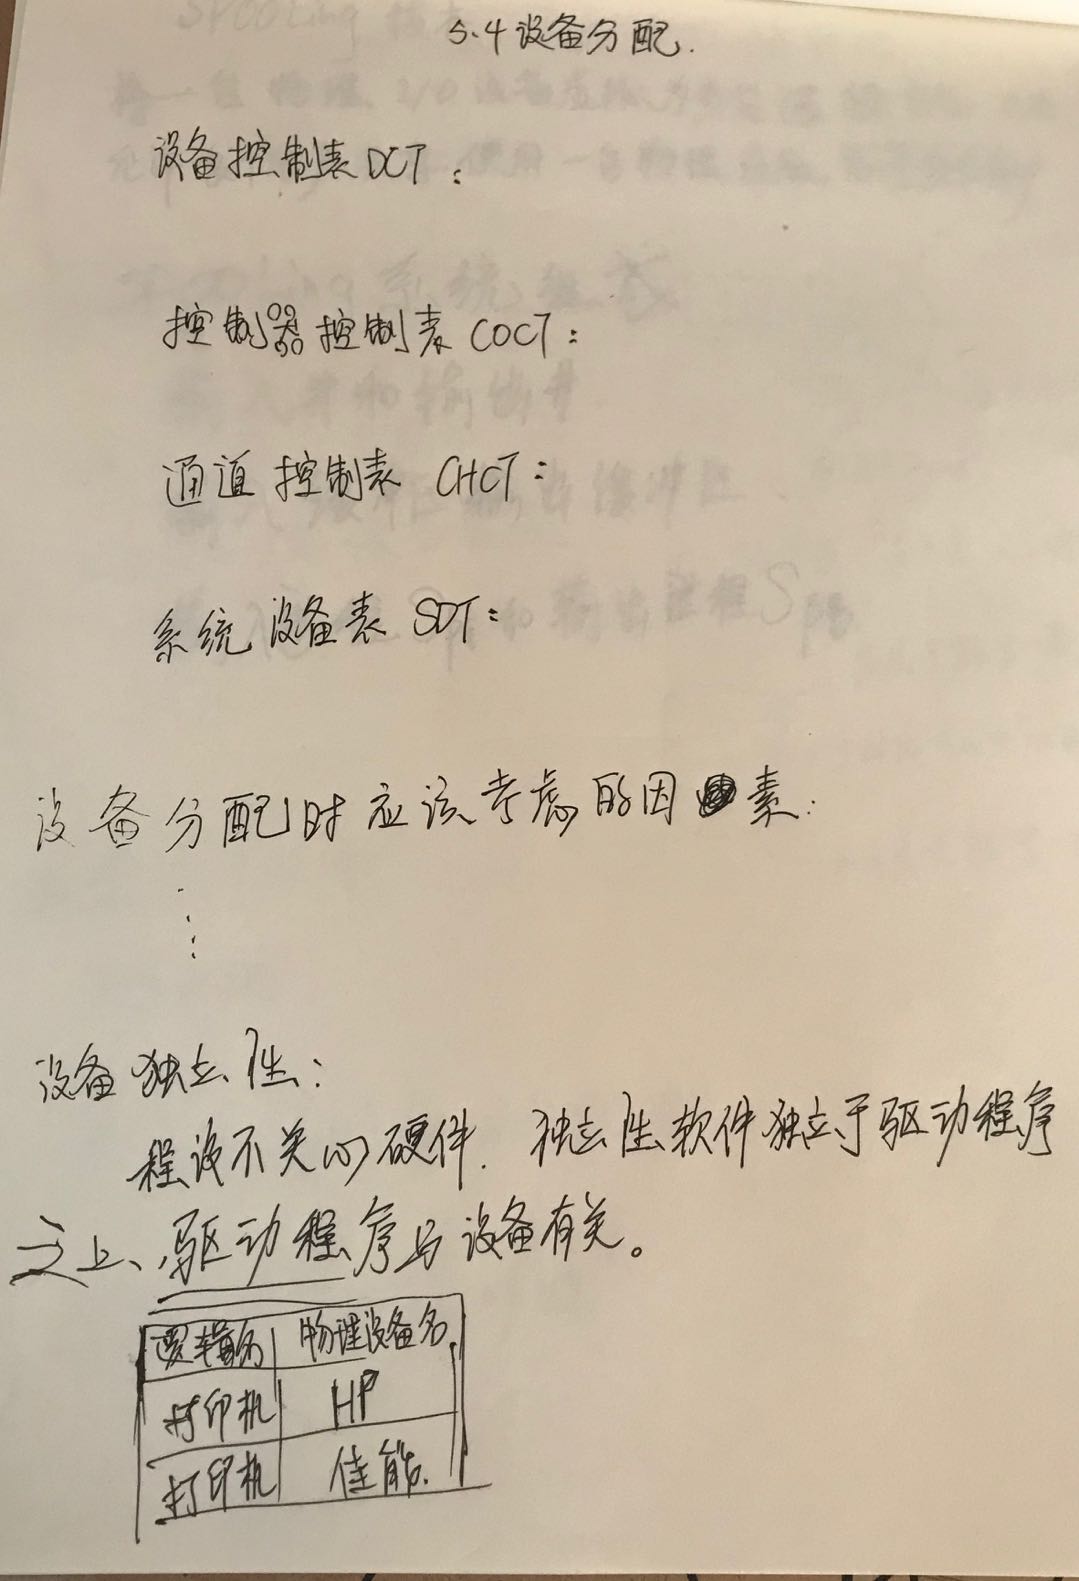 5.4 设备分配.
设备控制表 DCT:
控制器控制表 COCT:
通道控制表 CHCT:
系统设备表 SDT:
设备分配时应该考虑的因素:
设备独立性:
程设不关心硬件. 独立性软件独立于驱动程序
之上、驱动程序与设备有关。
逻辑名 物理设备名
打印机 HP
打印机 佳能.